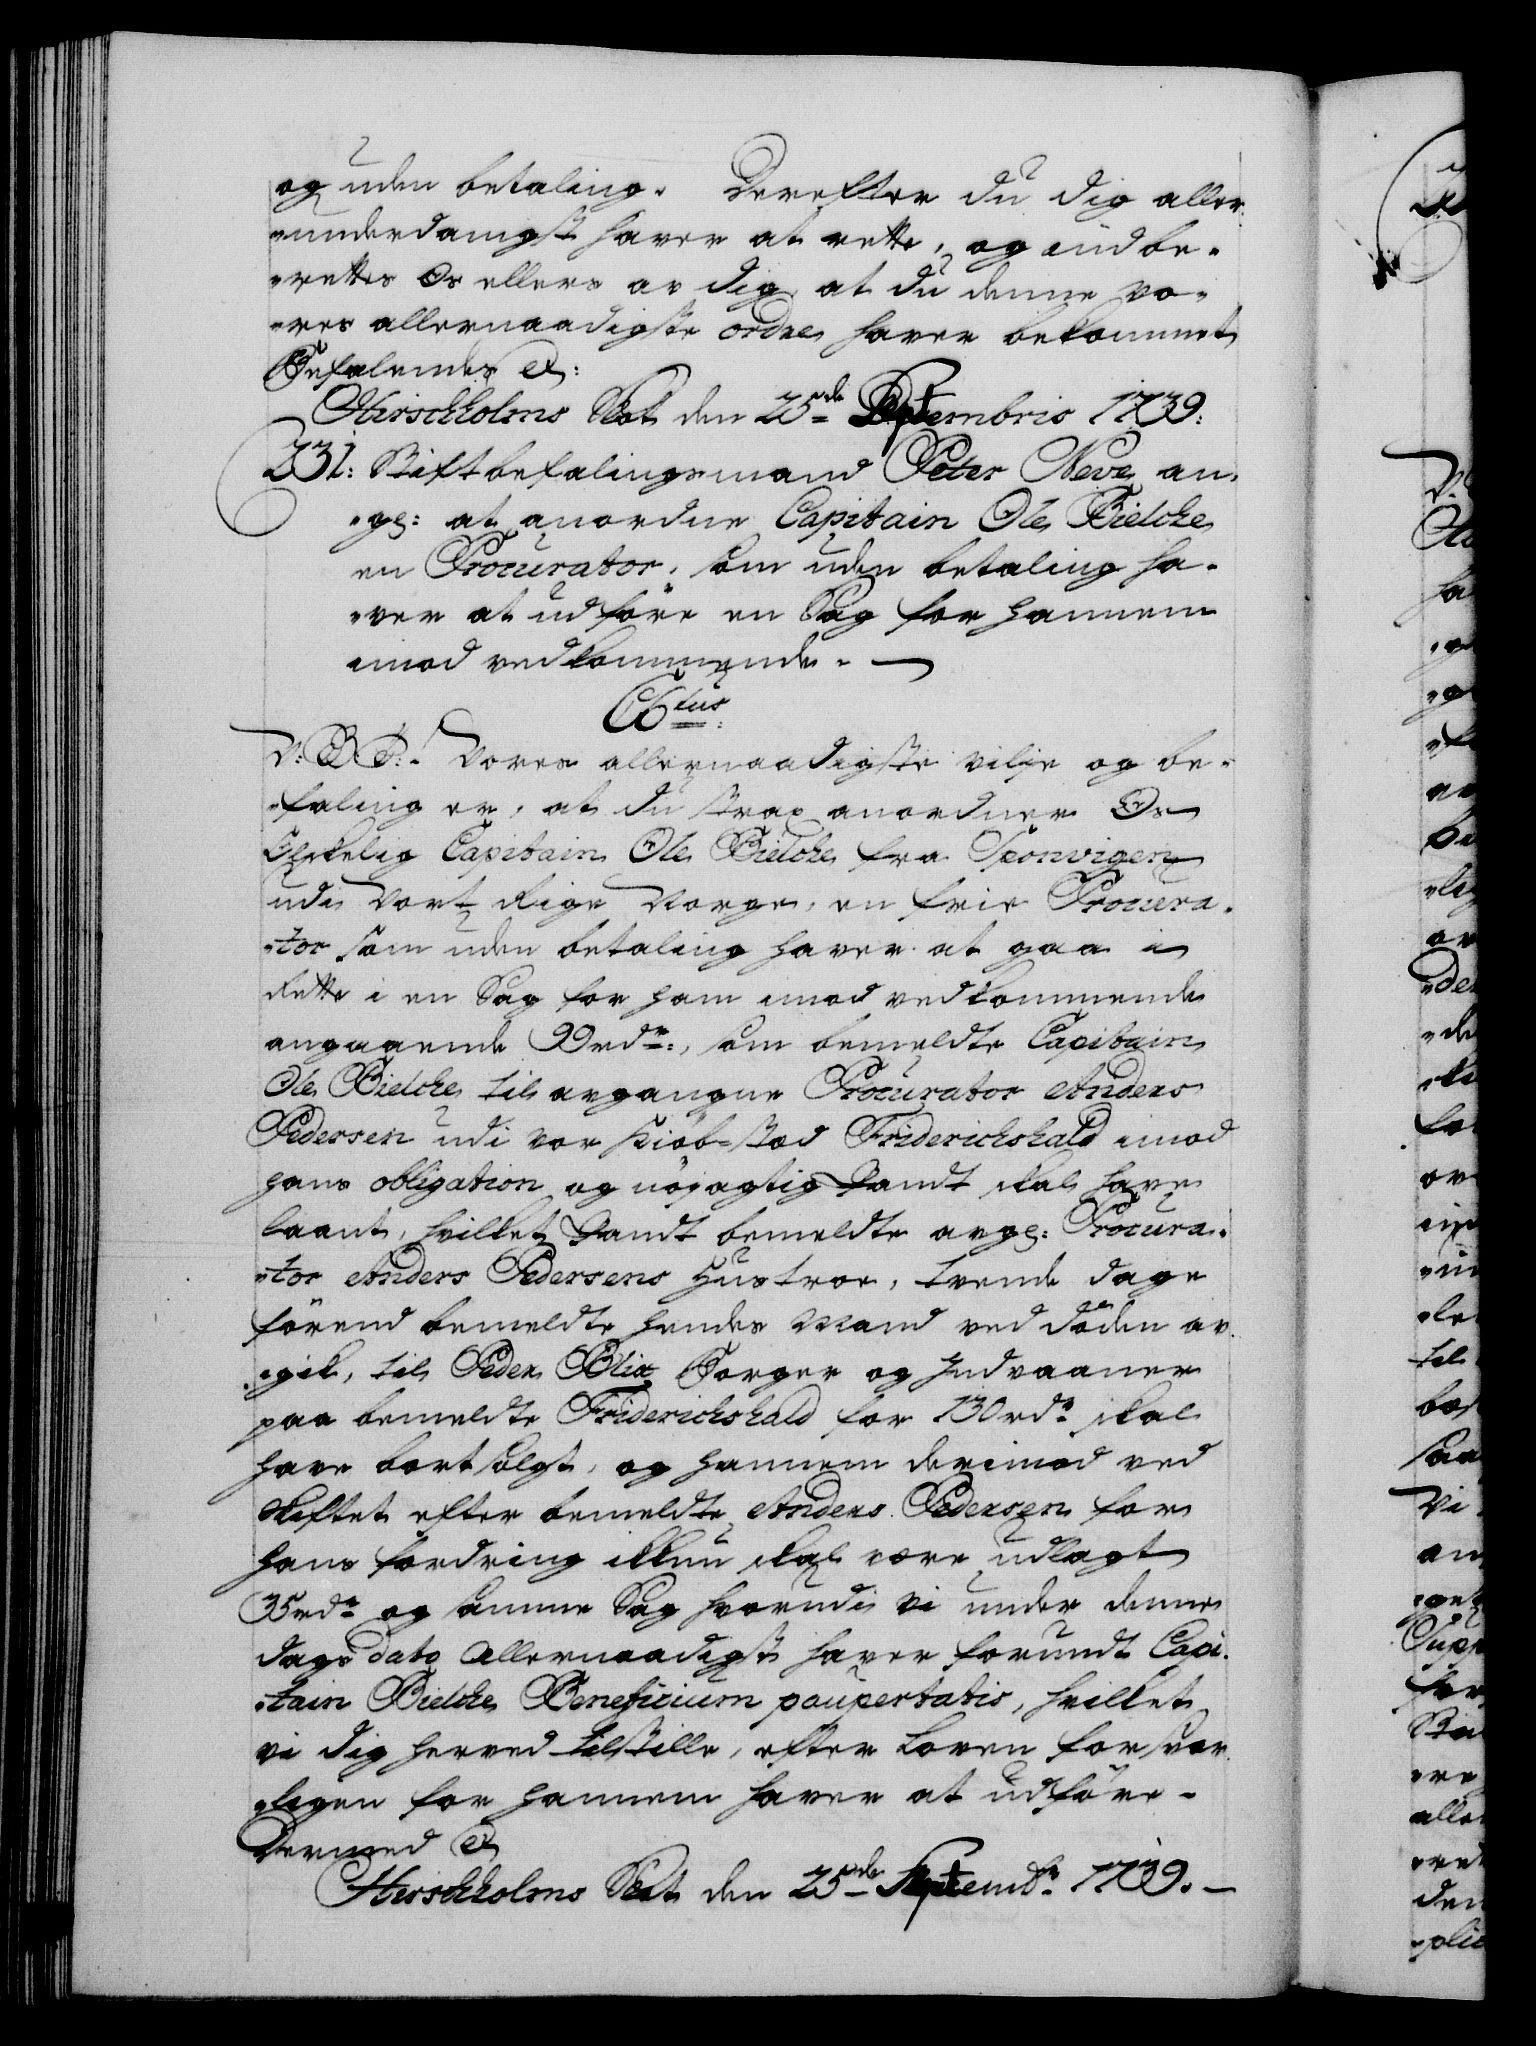 og uden betaling. Derefter du dig aller¬
„underdanigst haver at rette, og indbe¬
„rettes Os ellers av dig, at du denne vo¬
„res allernaadigste ordre haver bekommet
Befalendes &:
Hirschholms Slot den 25de Septembris 1739:
331: Stiftbefalingsmand Peter Neve an¬
„gl: at anordne Capitain Ole Bielche
en Procurator, som uden betaling ha¬
„ver at udføre en Sag for hannem
imod vedkommende. —
C6tus
V: G: T:. Vores allernaadigste vilje og be¬
„faling er, at du strax anordner Os
Elskelig Capitain Ole Bielche fra Sponvigen
udi Vort Rige Norge, en frie Procura¬
„tor som uden betaling haver at gaa i
Rette i en Sag for ham imod vedkommende
angaaende 99 rdr:, som bemeldte Capitain
Ole Bielche til avgangne Procurator Anders
Pedersen udi vor Kiøb-stad Friderichshald imod
hans obligation og nøjagtig Pandt skal have
laant, hvilket Pandt bemeldte avgl: Procura¬
„tor Anders Pedersens Hustroe, trende dage
førend bemeldte hendes Mand ved døden av¬
„gik, til Peder Blix Borger og Indvaaner
paa bemeldte Friderichshald for 130 rdr skal
have bortsolgt, og hannem derimod ved
Skiftet efter bemeldte Anders Pedersen for
hans fordring ikkun skal være udlagt
35 rdr og samme Sag hvorudi vi under denne
dags dato Allernaadigst haver forundt Capi¬
„tain Bielche Beneficium paupertatis, hvilket
vi dig herved tilstille, efter Loven forsvar¬
„ligen for hannem haver at udføre.
Dermed &
Hirschholms Slot den 25de Septembr 1739. —